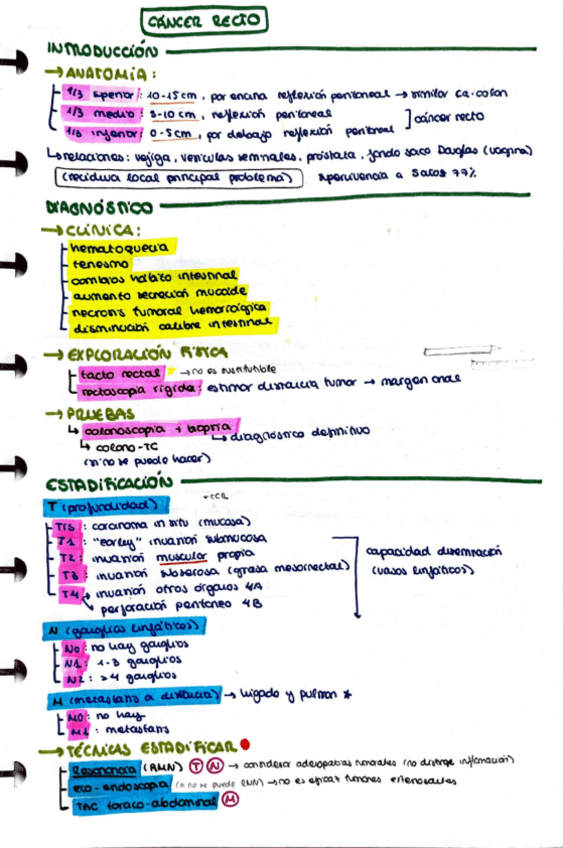 CÁNCER RECTO
INTRODUCCIÓN
→ ANATOMÍA:
1/3 superior: 10-15 cm, por encima reflexión peritoneal → similar ca. colon
1/3 medio: 5-10 cm, reflexión peritoneal
] cáncer recto
1/3 inferior: 0-5 cm, por debajo reflexión peritoneal
↳ relaciones: vejiga, vesículas seminales, próstata, fondo saco Douglas (vagina)
(recidiva local principal problema) supervivencia a 5 años 77%
DIAGNÓSTICO
→ CLÍNICA:
hematoquecia
tenesmo
cambios hábito intestinal
aumento secreción mucoide
necrosis tumoral hemorrágica
disminución calibre intestinal
→ EXPLORACIÓN FÍSICA
tacto rectal → no es sustituible
rectoscopia rígida: estimar distancia tumor → margen anal
→ PRUEBAS
↳ colonoscopia + biopsia
↳ diagnóstico definitivo
↳ colono-TC
(si no se puede hacer)
ESTADIFICACIÓN
T (profundidad)
TIS: carcinoma in situ (mucosa)
T1: "earley" invasión submucosa
T2: invasión muscular propia
T3: invasión subserosa (grasa mesorrectal)
T4 → invasión otros órganos 4A
perforación peritoneo 4B
capacidad diseminación
(vasos linfáticos)
N (ganglios linfáticos)
N0: no hay ganglios
N1: 1-3 ganglios
N2: >4 ganglios
M (metástasis a distancia) → hígado y pulmón *
M0: no hay
M1: metástasis
→ TÉCNICAS ESTADIFICAR
Resonancia (RMN) T N → considerar adenopatías tumorales (no distingue inflamación)
eco-endoscopia (si no se puede RMN) → no es eficaz tumores estenosantes
TAC toraco-abdominal M